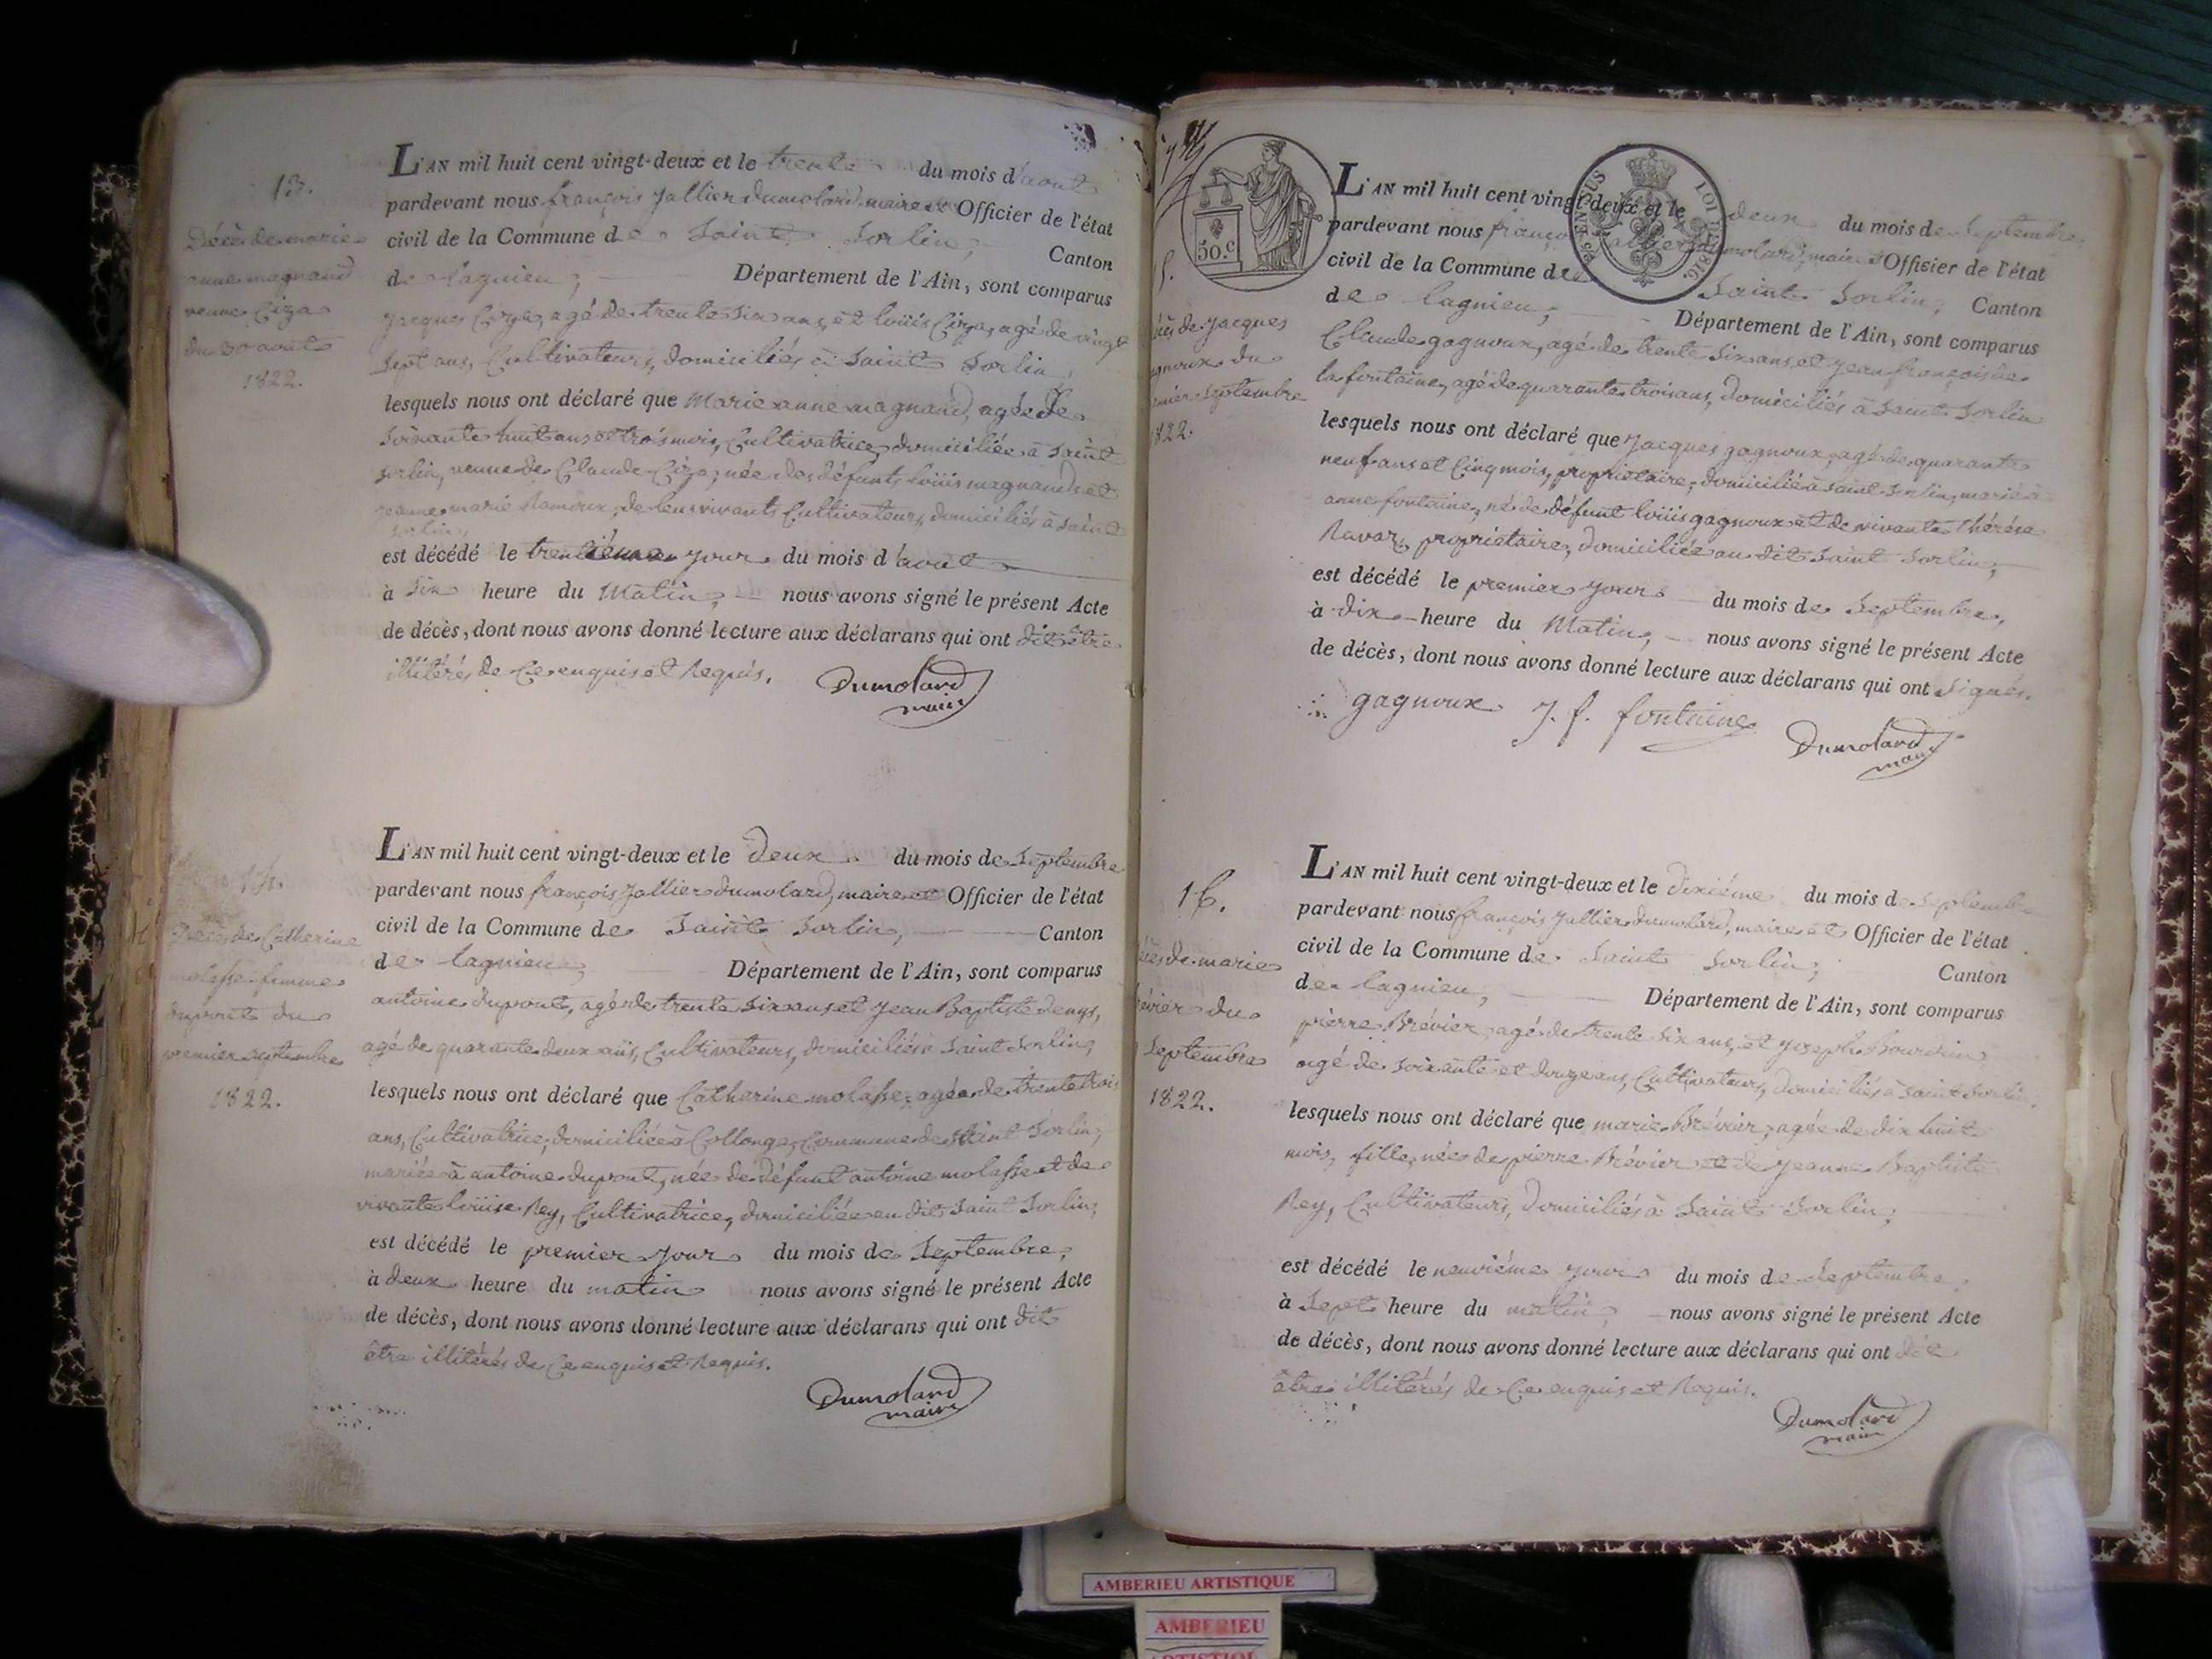 13.
Décès de marie
anne magnand
veuve Ciza
du 30 août
1822.
L'AN mil huit cent vingt-deux et le trente du mois d'aout
pardevant nous françois Jallier Dumolard, maire et Officier de l'état
civil de la Commune de Saint Sorlin, Canton
de Lagnieu, Département de l'Ain, sont comparus
Jacques Ciza, agé de trente six ans, et loüis Ciza, agé de vingt
sept ans, Cultivateurs, domiciliés à Saint Sorlin,
lesquels nous ont déclaré que Marie anne magnand, agée de
soixante huit ans et trois mois, Cultivatrice, domiciliée à Saint
Sorlin, veuve de Claude Ciza, née des défunts loüis magnand et
jeanne marie, de leur vivants Cultivateurs, domiciliés à Saint
Sorlin,
est décédé le trentième jour du mois d'aout
à six heure du Matin, nous avons signé le présent Acte
de décès, dont nous avons donné lecture aux déclarans qui ont dit être
illitérés de Ce enquis et Requis.
Dumolard
maire
14.
Décès de Catherine
molasse femme
dupont du
premier septembre
1822.
L'AN mil huit cent vingt-deux et le deux du mois de Septembre
pardevant nous françois Jallier Dumolard, maire et Officier de l'état
civil de la Commune de Saint Sorlin, Canton
de lagnieu, Département de l'Ain, sont comparus
antoine dupont, agé de trente six ans et jean Baptiste denys,
agé de quarante deux ans, Cultivateurs, domiciliés à Saint Sorlin,
lesquels nous ont déclaré que Catherine molasse, agée de trente trois
ans, Cultivatrice, domiciliée à Collonge, Commune de Saint Sorlin,
mariée à antoine dupont, née de défunt antoine molasse et de
vivante loüise Rey, Cultivatrice, domiciliée au dit Saint Sorlin,
est décédé le premier jour du mois de Septembre,
à deux heure du matin nous avons signé le présent Acte
de décès, dont nous avons donné lecture aux déclarans qui ont dit
être illitérés de Ce enquis et Requis.
Dumolard
maire
50.c
LOI DE 1816.
Jacques
du
septembre
1822.
L'AN mil huit cent vingt-deux et le deux du mois de Septembre
pardevant nous françois Jallier Dumolard, maire et Officier de l'état
civil de la Commune de Saint Sorlin, Canton
de lagnieu, Département de l'Ain, sont comparus
Claude gagnoux, agé de trente six ans, et jean françois de
la fontaine, agé de quarante trois ans, domiciliés à Saint Sorlin
lesquels nous ont déclaré que Jacques gagnoux, agé de quarante
neuf ans et Cinq mois, propriétaire, domicilié à Saint Sorlin, marié à
anne fontaine, né de défunt loüis gagnoux et de vivante thérèse
Ravar, propriétaire, domiciliée au dit Saint Sorlin,
est décédé le premier jour du mois de Septembre,
à dix heure du Matin, nous avons signé le présent Acte
de décès, dont nous avons donné lecture aux déclarans qui ont signés.
gagnoux J. f. fontaine
Dumolard
maire
16.
de marie
du
Septembre
1822.
L'AN mil huit cent vingt-deux et le dixième du mois de Septembre
pardevant nous françois Jallier Dumolard, maire et Officier de l'état
civil de la Commune de Saint Sorlin, Canton
de lagnieu, Département de l'Ain, sont comparus
pierre Brévier, agé de trente six ans, et joseph Bourdin
agé de soixante et douze ans, Cultivateurs, domiciliés à Saint Sorlin,
lesquels nous ont déclaré que marie Brévier, agée de dix huit
mois, fille, née de pierre Brévier et de jeanne Baptiste
Rey, Cultivateurs, domiciliés à Saint Sorlin,
est décédé le neuvième jour du mois de Septembre
à Sept heure du matin, nous avons signé le présent Acte
de décès, dont nous avons donné lecture aux déclarans qui ont dit
être illitérés de Ce enquis et Requis.
Dumolard
maire
AMBERIEU ARTISTIQUE
AMBERIEU
ARTISTIQUE